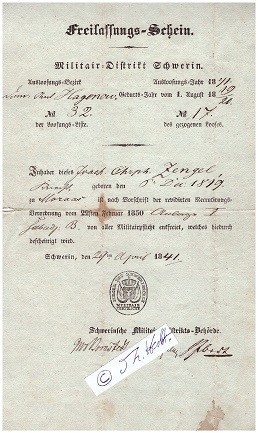 Freilassungs-Schein.
Militair-Distrikt Schwerin.
Ausloosungs-Bezirk Ausloosungs-Jahr 1841
Hagenow. Geburts-Jahr vom 1. August 1819/20
№ 32. № 17.
der Loosungs-Liste. des gezogenen Looses.
Inhaber dieses Joach. Chrph. Zengel,
geboren den 6. Dec 1819
zu Moraas ist nach Vorschrift der revidirten Recrutirungs-
Verordnung vom 22sten Februar 1830 I
B. von aller Militairpflicht entfreiet, welches hiedurch
bescheinigt wird.
Schwerin, den 24 April 1841.
Schwerinsche Militair-Distrikts-Behörde.